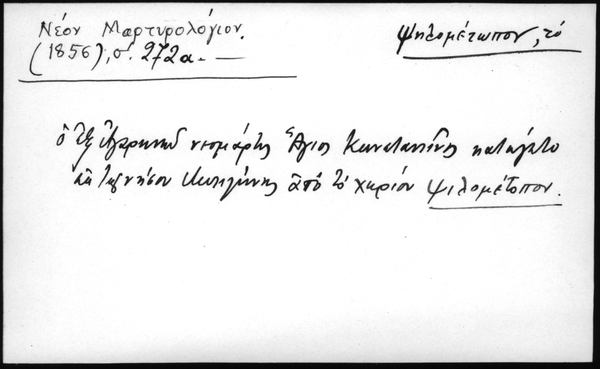 Νέον Μαρτυρολόγιον.
(1856), σ. 272α. —
Ψηλομέτωπον, τό
ὁ ἐξ Ἀγαρηνῶν νεομάρτυς Ἅγιος Κωνσταντῖνος κατάγετο
ἐκ τῆς νήσου Μυτιλήνης ἀπό τό χωρίον Ψιλομέτοπον.